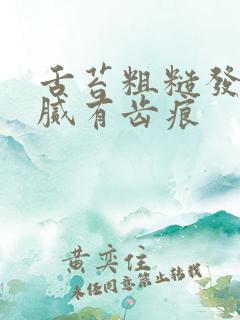 舌苔粗糙發
膩有齿痕
黄奕住
未任同意禁止转载